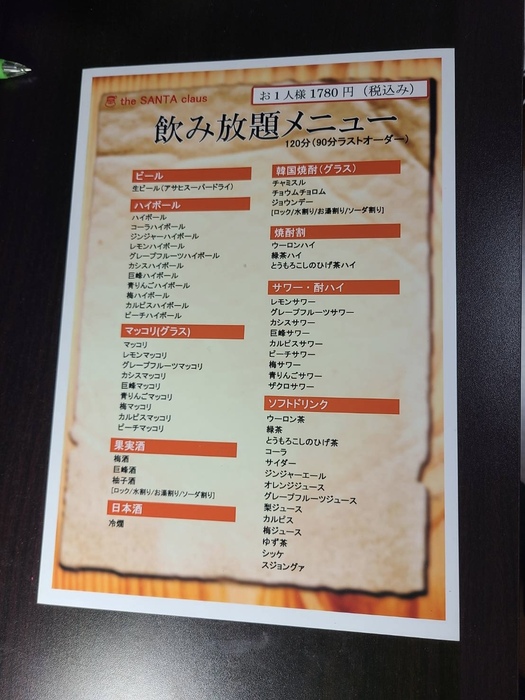 the SANTA claus
お1人様 1780円 (税込み)
飲み放題メニュー
120分(90分ラストオーダー)
ビール
生ビール(アサヒスーパードライ)
ハイボール
ハイボール
コーラハイボール
ジンジャーハイボール
レモンハイボール
グレープフルーツハイボール
カシスハイボール
巨峰ハイボール
青りんごハイボール
梅ハイボール
カルピスハイボール
ピーチハイボール
マッコリ(グラス)
マッコリ
レモンマッコリ
グレープフルーツマッコリ
カシスマッコリ
巨峰マッコリ
青りんごマッコリ
梅マッコリ
カルピスマッコリ
ピーチマッコリ
果実酒
梅酒
巨峰酒
柚子酒
[ロック/水割り/お湯割り/ソーダ割り]
日本酒
冷燗
韓国焼酎(グラス)
チャミスル
チョウムチョロム
ジョウンデー
[ロック/水割り/お湯割り/ソーダ割り]
焼酎割
ウーロンハイ
緑茶ハイ
とうもろこしのひげ茶ハイ
サワー・酎ハイ
レモンサワー
グレープフルーツサワー
カシスサワー
巨峰サワー
カルピスサワー
ピーチサワー
梅サワー
青りんごサワー
ザクロサワー
ソフトドリンク
ウーロン茶
緑茶
とうもろこしのひげ茶
コーラ
サイダー
ジンジャーエール
オレンジジュース
グレープフルーツジュース
梨ジュース
カルピス
梅ジュース
ゆず茶
シッケ
スジョングァ